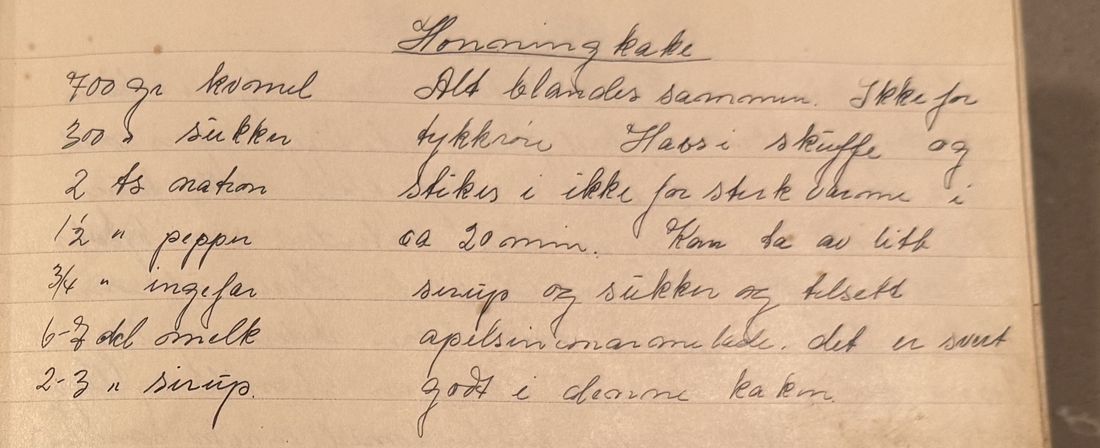 Honningkake
700 gr kvomel
300 " sukker
2 ts natron
1½ " pepper
¾ " ingefær
6-7 dcl melk
2-3 " sirup.
Alt blandes sammen. Ikke for
tykkrøre Haes i skuffe og
stikes i ikke for sterk varme i
ca 20 min. Kan ta av litt
sirup og sukker og tilsett
apelsinmarmelade. det er svert
godt i denne kaken.